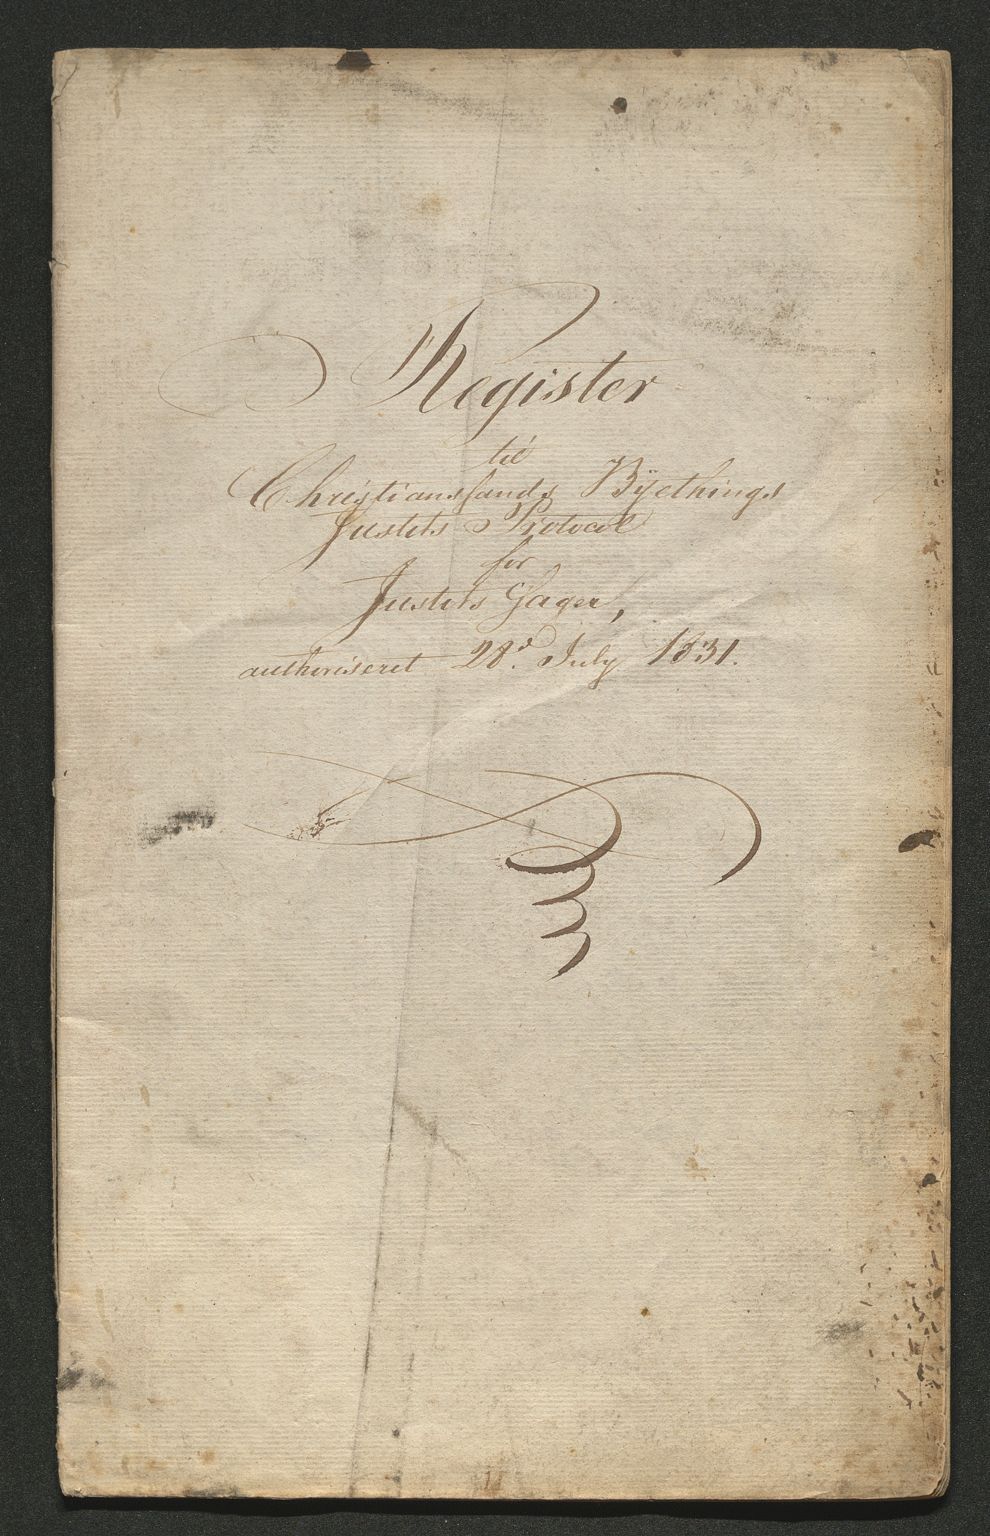 Register
til
Christianssands Byethings
Justits Protocol
for
Justits Sager,
authoriseret 28d. July 1831.